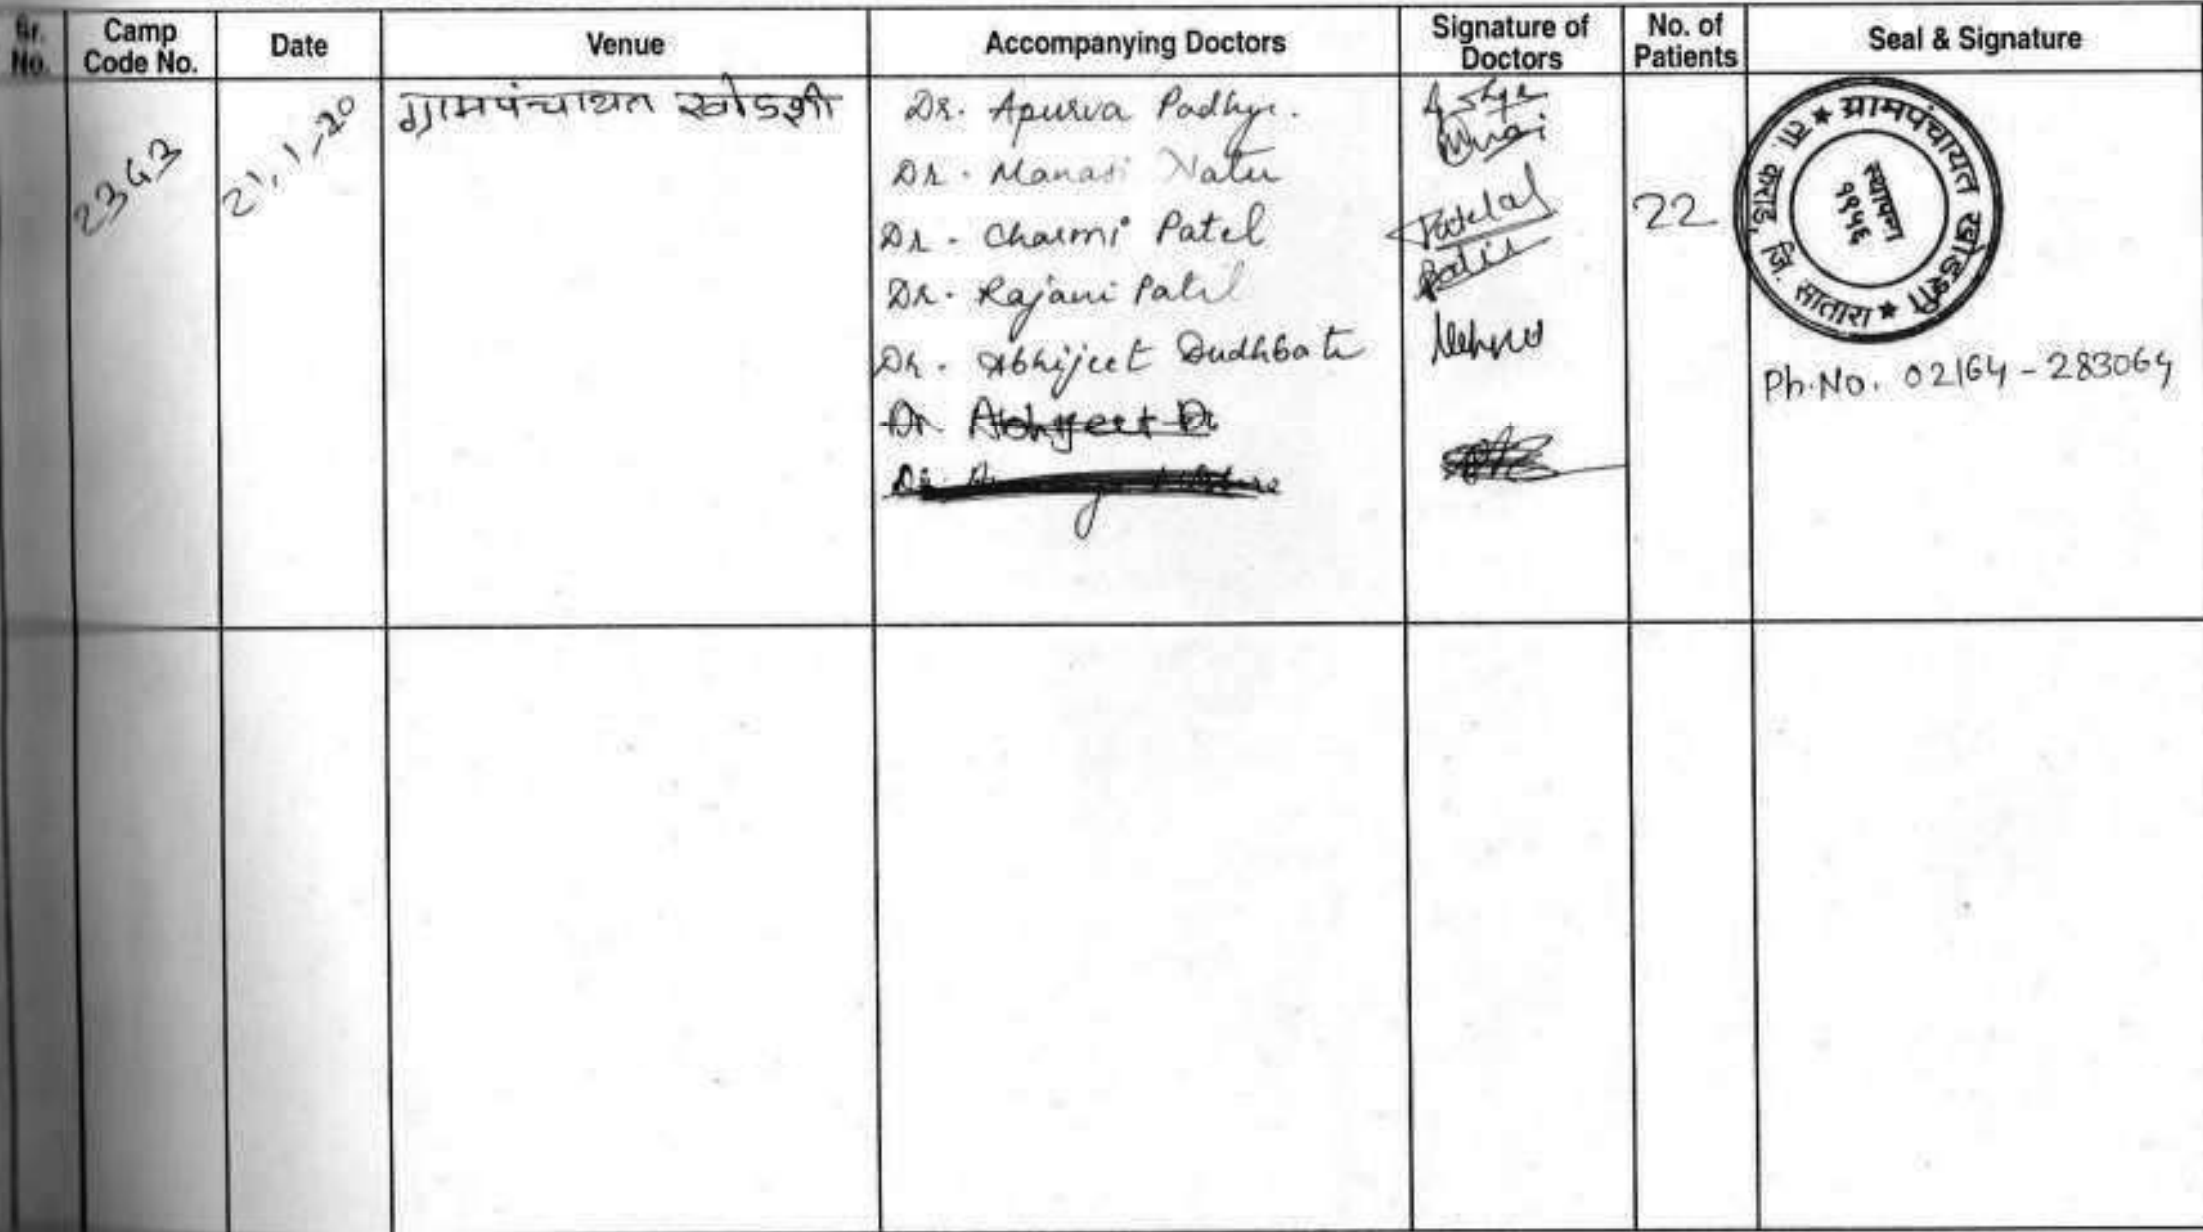 Sr. No. Camp Code No. Date Venue Accompanying Doctors Signature of Doctors No. of Patients Seal & Signature
2363 21.1.20 ग्रामपंचायत खोडशी Dr. Apurva Padhye. 22
Dr. Manasi Natu
Dr. Charmi Patel Patel
Dr. Rajani Patil Patil
Dr. Abhijeet Dudhbate
Dr Abhijeet D
Dr.
★ ग्रामपंचायत खोडशी ★ जि. सातारा
स्थापना
१९५६
Ph.No. 02164-283064